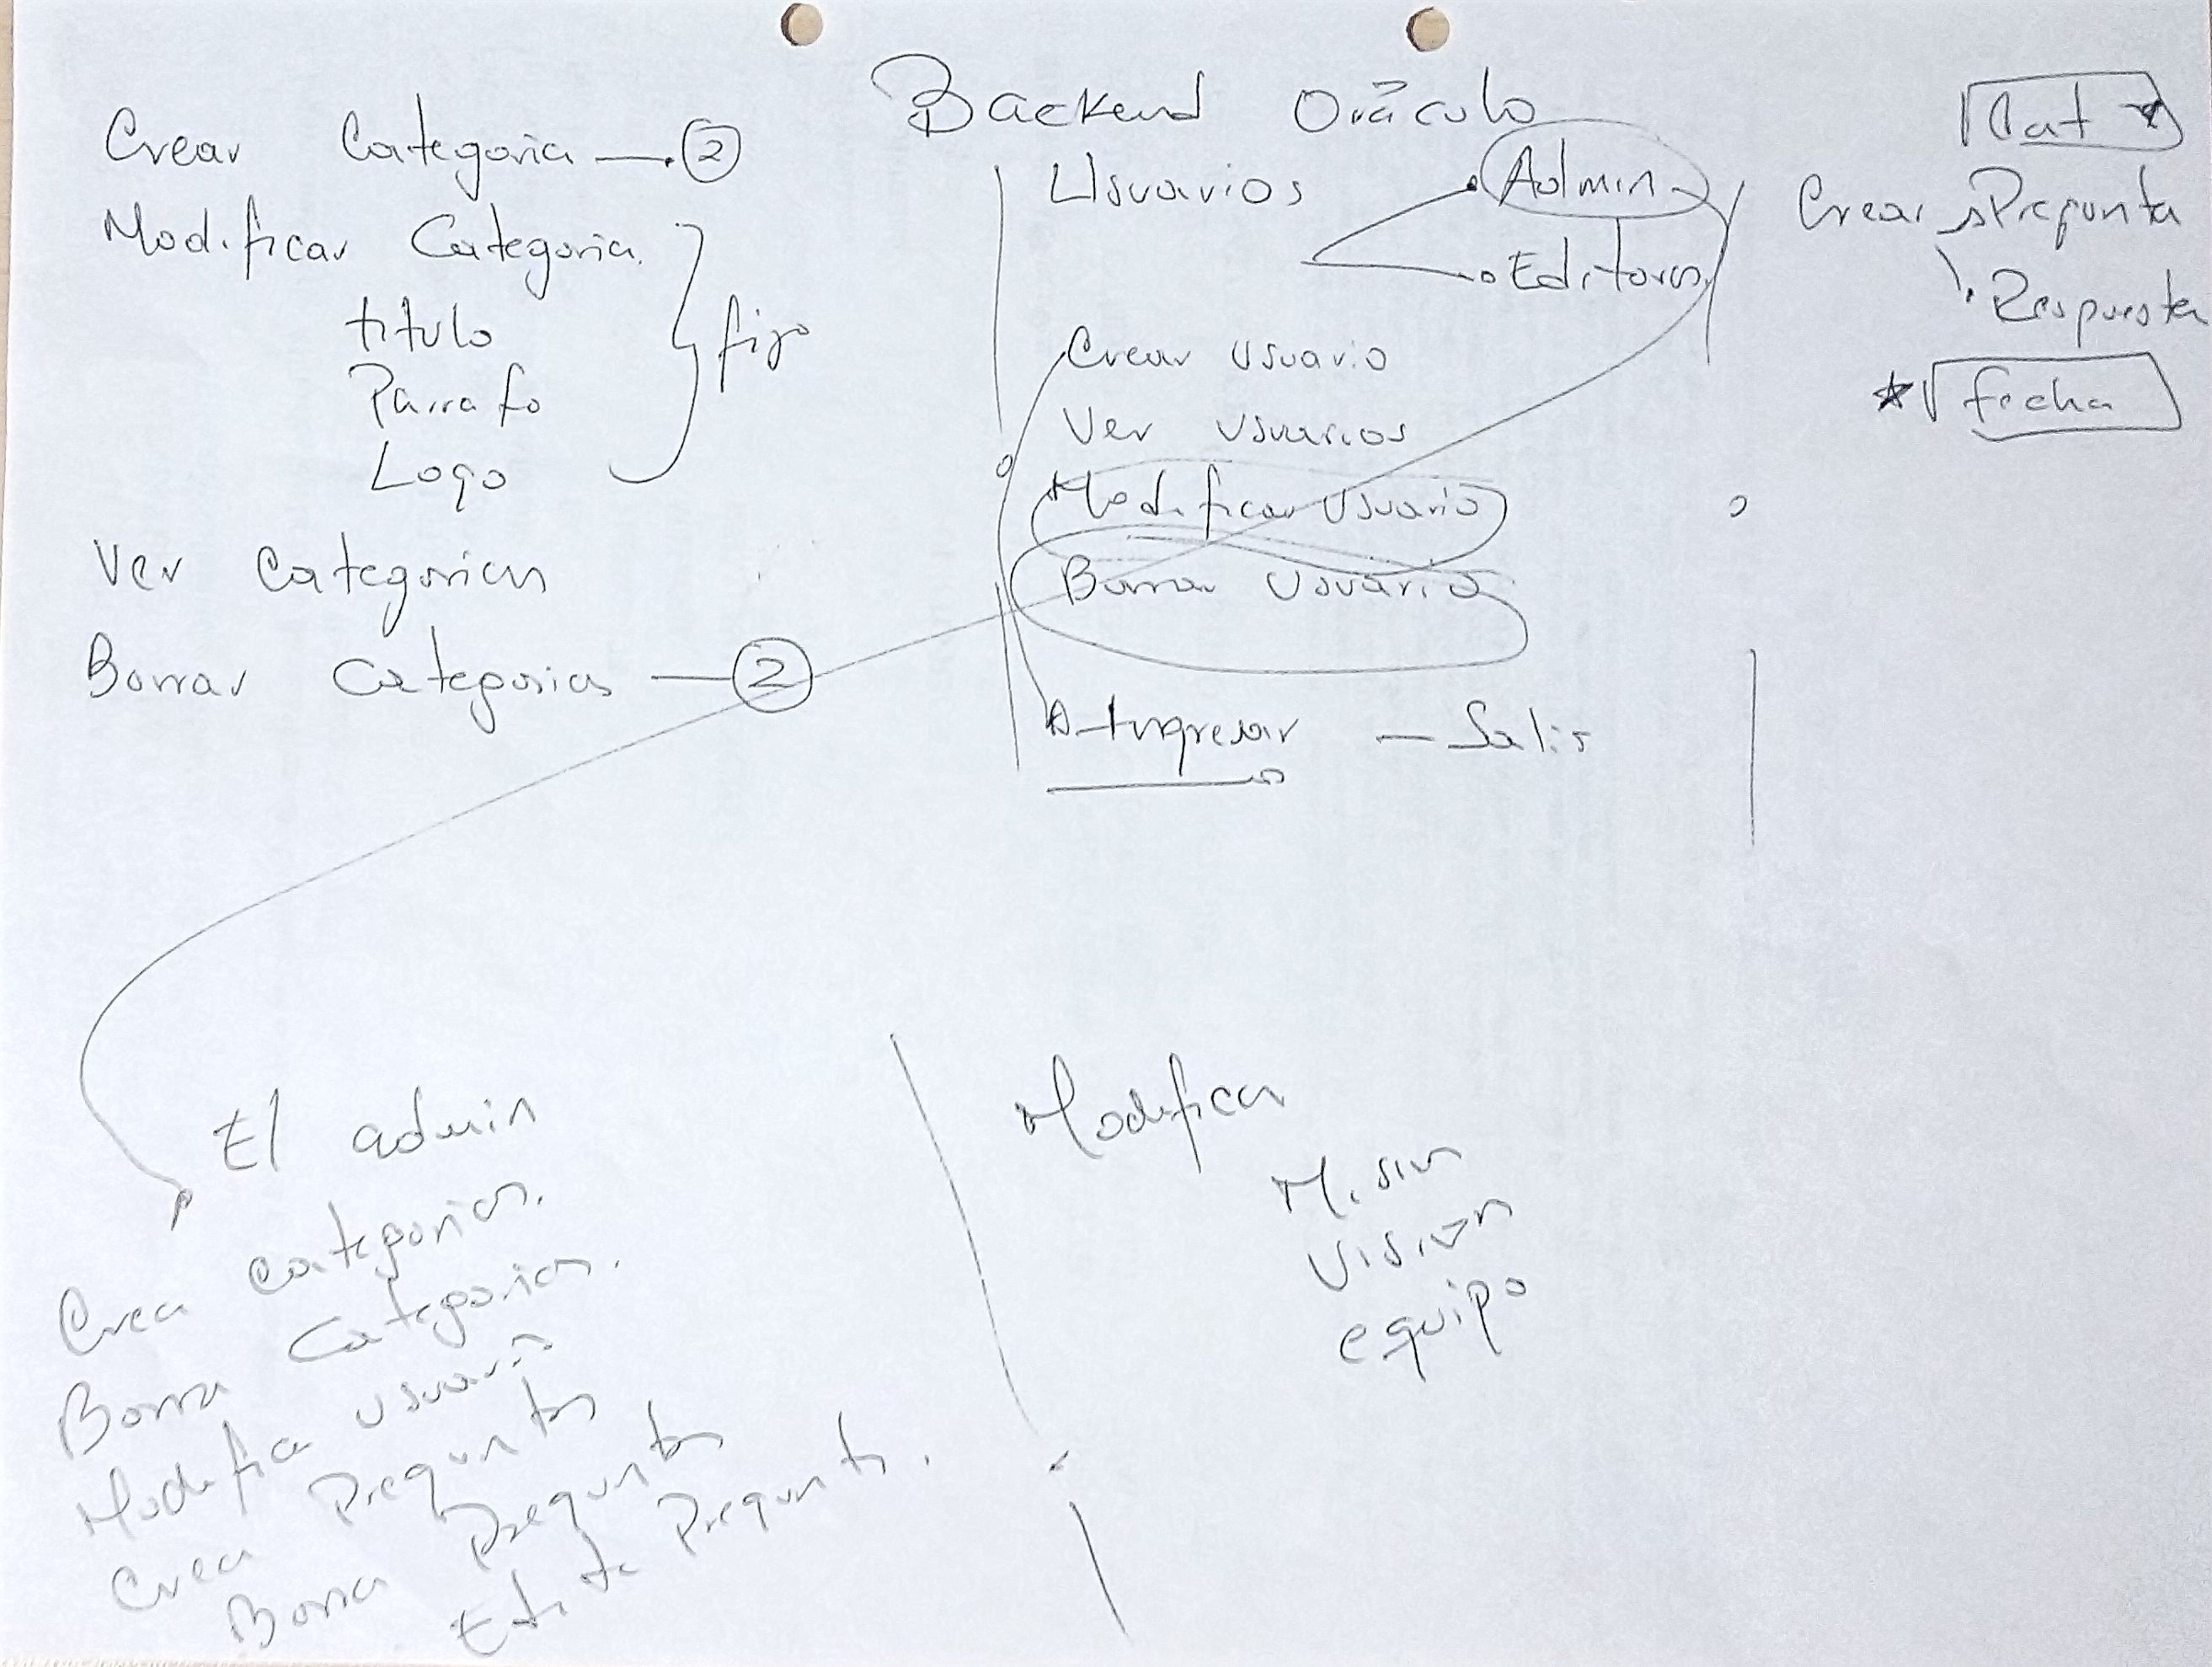 Backend Oráculo
Crear Categoria — 2
Modificar Categoria
titulo
Parrafo
Logo
fijo
Ver Categorias
Borrar Categorias — 2
Usuarios
Admin
Editores
Crear usuario
Ver usuarios
Modificar Usuario
Borrar Usuario
Ingresar — Salir
Crear Pregunta
Respuesta
* fecha
El admin
Crea categorias.
Borra Categorias.
Modifica usuario
Crea Preguntas
Borra Preguntas
Edita Pregunta.
Modificar
Misión
Visión
equipo